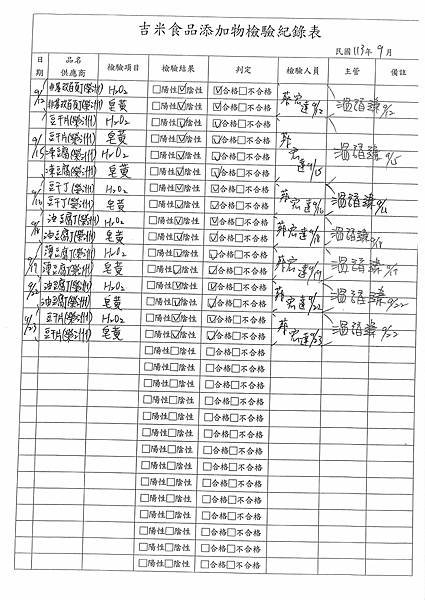 吉米食品添加物檢驗紀錄表
民國 113年 9月
日期 品名 供應商 檢驗項目 檢驗結果 判定 檢驗人員 主管 備註
9/12 H2O2 □陽性☑陰性 ☑合格□不合格 9/12 9/12
皂黃 □陽性☑陰性 ☑合格□不合格
豆干片(榮洲) H2O2 □陽性☑陰性 ☑合格□不合格
9/15 豆干片(榮洲) 皂黃 □陽性☑陰性 ☑合格□不合格 9/15 9/15
凍豆腐(榮洲) H2O2 □陽性☑陰性 ☑合格□不合格
凍豆腐(榮洲) 皂黃 □陽性☑陰性 ☑合格□不合格
豆干丁(榮洲) H2O2 □陽性☑陰性 ☑合格□不合格
豆干丁(榮洲) 皂黃 □陽性☑陰性 ☑合格□不合格
9/18 油豆腐丁(榮洲) H2O2 □陽性☑陰性 ☑合格□不合格 9/18 9/18
油豆腐丁(榮洲) 皂黃 □陽性☑陰性 ☑合格□不合格
9/19 凍豆腐丁(榮洲) H2O2 □陽性☑陰性 ☑合格□不合格 9/19 9/19
凍豆腐丁(榮洲) 皂黃 □陽性☑陰性 ☑合格□不合格
9/22 油豆腐丁(榮洲) H2O2 □陽性☑陰性 ☑合格□不合格 9/22 9/22
油豆腐丁(榮洲) 皂黃 □陽性☑陰性 ☑合格□不合格
9/23 豆干片(榮洲) H2O2 □陽性☑陰性 ☑合格□不合格 9/23
豆干片(榮洲) 皂黃 □陽性☑陰性 ☑合格□不合格
□陽性□陰性 □合格□不合格
□陽性□陰性 □合格□不合格
□陽性□陰性 □合格□不合格
□陽性□陰性 □合格□不合格
□陽性□陰性 □合格□不合格
□陽性□陰性 □合格□不合格
□陽性□陰性 □合格□不合格
□陽性□陰性 □合格□不合格
□陽性□陰性 □合格□不合格
□陽性□陰性 □合格□不合格
□陽性□陰性 □合格□不合格
□陽性□陰性 □合格□不合格
□陽性□陰性 □合格□不合格
□陽性□陰性 □合格□不合格